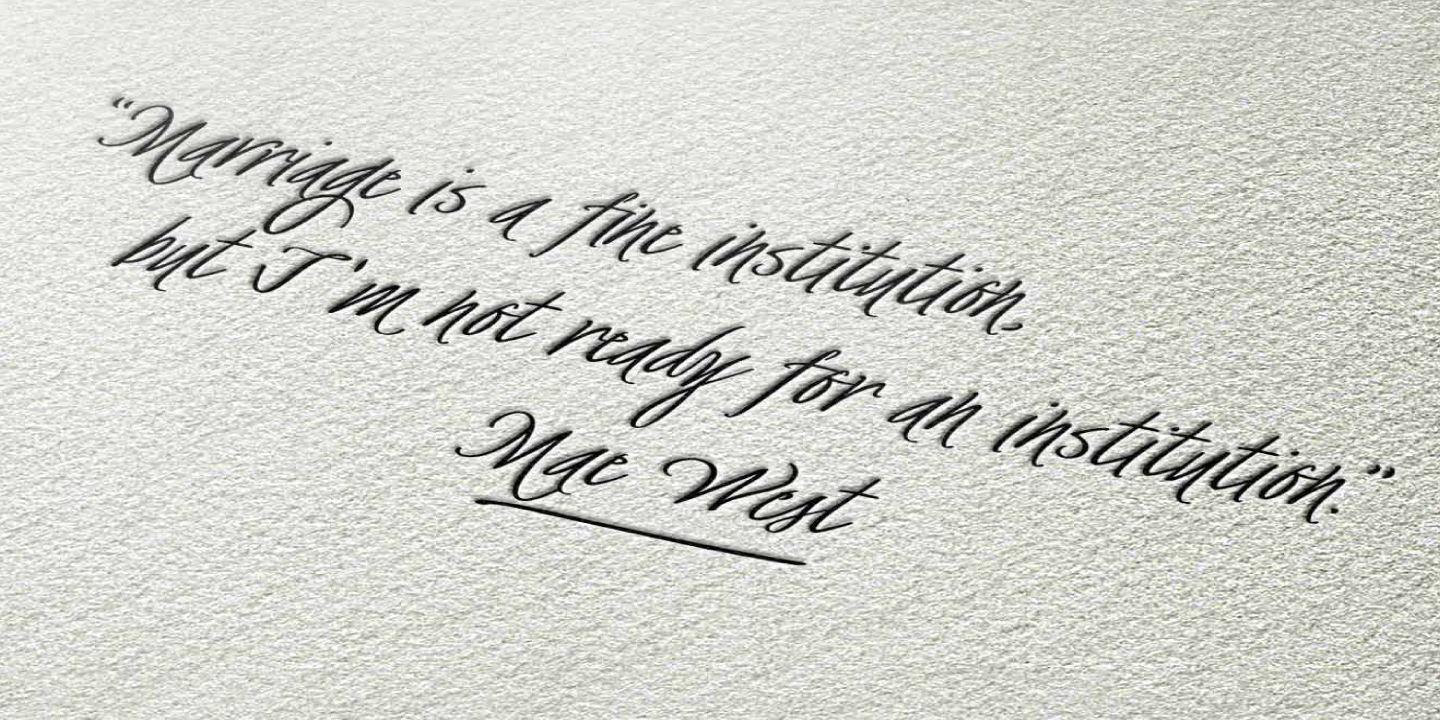 “Marriage is a fine institution,
but I'm not ready for an institution.”
Mae West